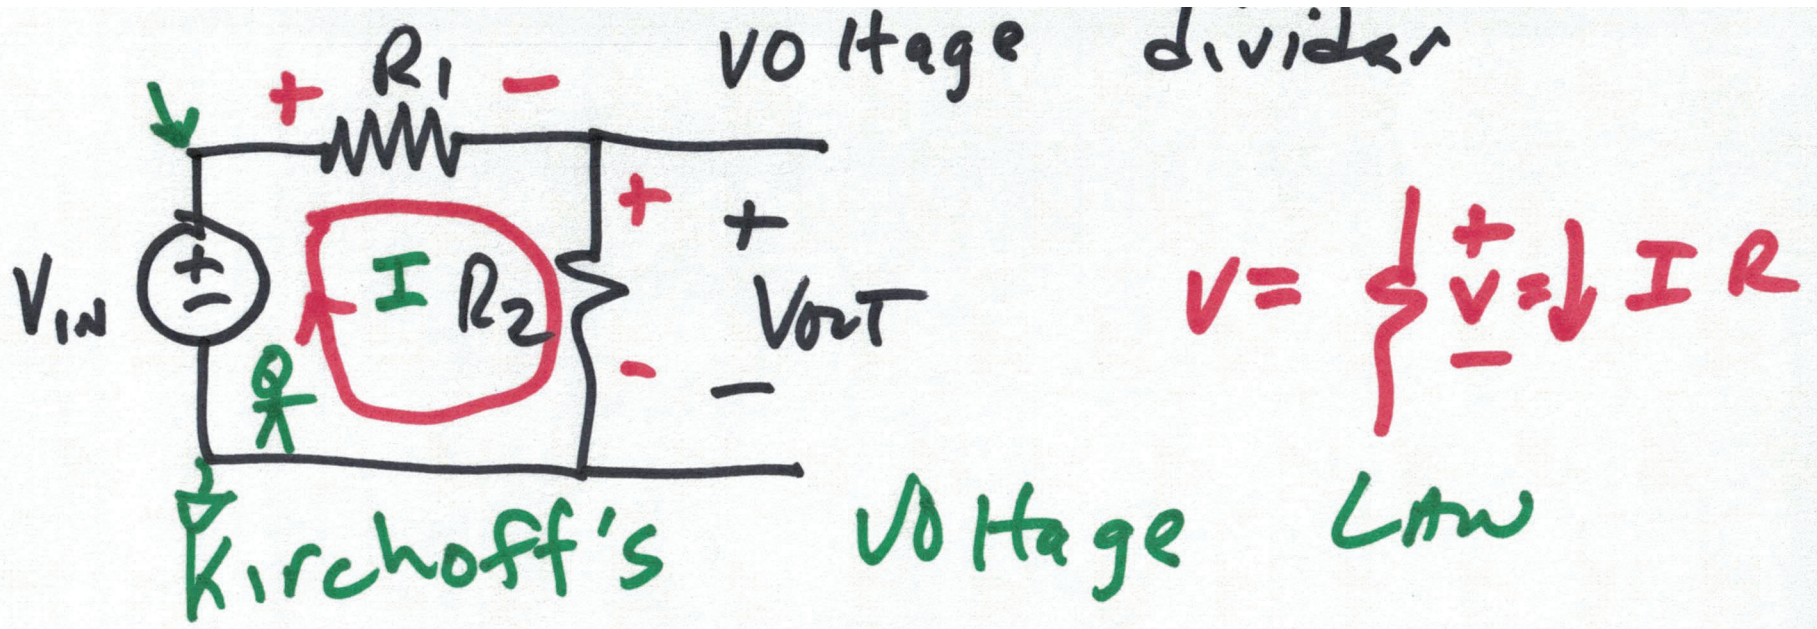 voltage divider
+ R1 -
+ +
VIN + - I R2 VOUT V= + V= ↓ I R -
- -
Kirchoff's Voltage LAW